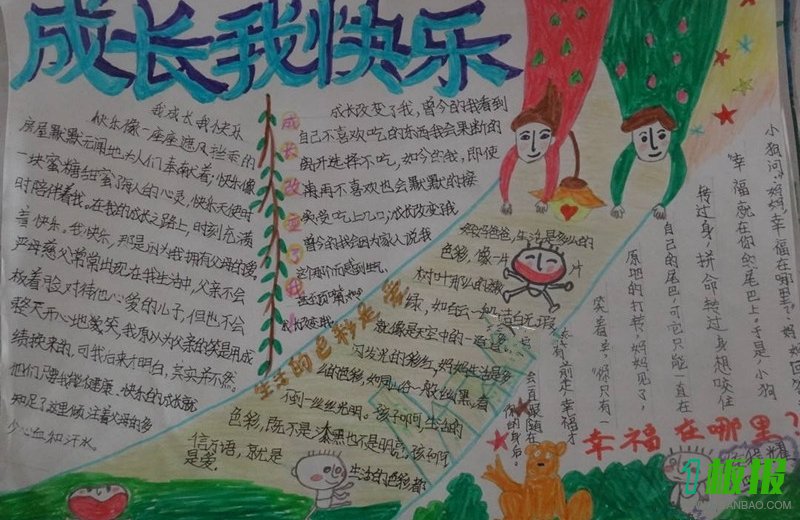 成长我快乐
我成长我快乐
快乐像一座座遮风挡雨的
房屋默默无闻地为人们奉献着;快乐像
一块蜜糖甜蜜了我人的心灵,快乐天使时
时陪伴着我。在我的成长之路上,时刻充满
着快乐。我快乐,那是因为我拥有父母的爱
严母慈父常常出现在我生活中,父亲不会
板着脸对待他心爱的儿子,但也不会
整天开心地微笑,我原以为父亲的笑是用成
绩换来的,可我后来才明白,其实并不然。
他们只要我能健康、快乐的成长就
知足了这里倾注着父母的多
少心血和汗水。
成长改变了我
成长改变了我,曾今的我看到
自己不喜欢吃的东西我会果断的
离开选择不吃,如今的我,即使
再不喜欢也会默默的接
受吃上几口;成长改变我
曾今的我会因为家人说我
成长改变我
生活的色彩是爱
妈妈爸爸,生活是多么的
色彩,像一片片
树叶那么的嫩
绿,如白云一般洁白无瑕
就像是天空中的一道
闪发光的彩虹,妈妈生活是多
么的色彩,如同山谷一般丝黑,看
不到一丝丝光明。孩子啊,生活的
色彩,既不是漆黑也不是明亮,孩子啊
生活的色彩着
信万语,就是
是爱。
幸福在哪里?
小狗问:“妈妈,幸福在哪里?”妈妈回答
“幸福就在你的尾巴上。”于是,小狗
转过身,拼命转过身想咬住
自己的尾巴,可它只能一直在
原地的打转,妈妈见了,
笑着说:“你只有一
直往前走,幸福才
会一直跟随在
你的身后。
板报
WWW.BANBAO.COM